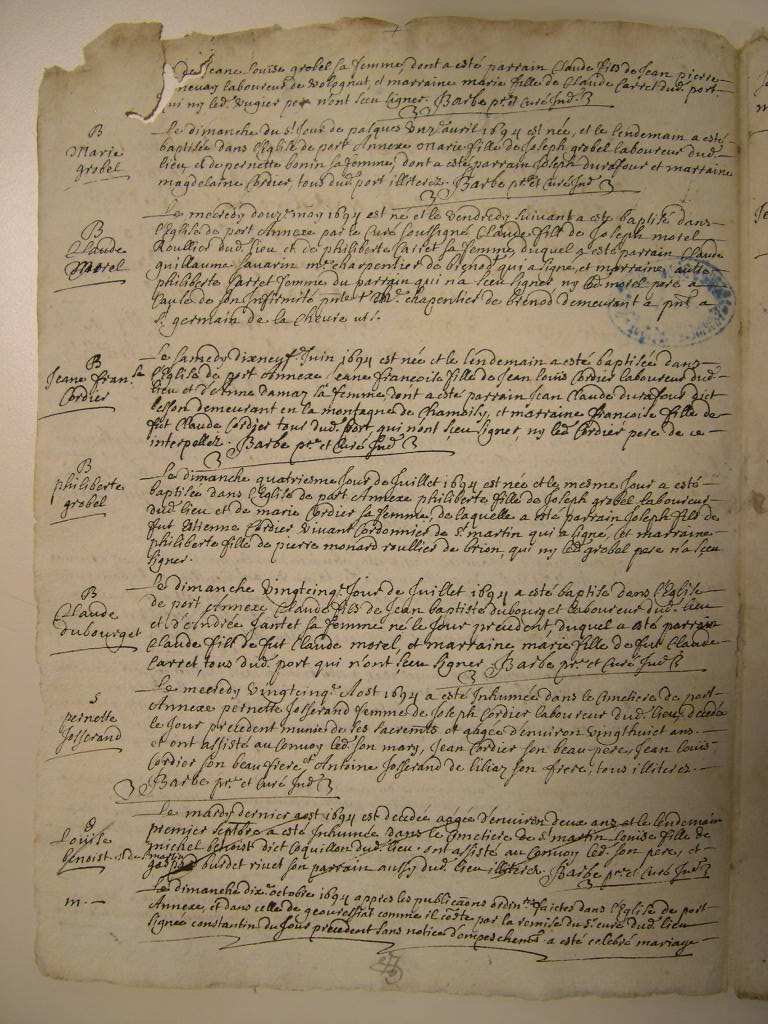 de Jeane Louise grobel sa femme, dont a esté parrain Claude fils de Jean pierre
laboureur de volognat, et marraine marie fille de Claude Carret dud. port
qui ny led. Vugier pere n'ont sceu signer. Barbe ptre et Curé Ind.
B
Marie
grobel
Le dimanche du st Jour de pasques unze avril 1694 est née, et le lendemain a esté
baptisée dans l'Eglise de port Annexe Marie fille de Joseph grobel laboureur dud.
lieu et de pernette bonin sa femme, dont a esté parrain Joseph Durafour et marraine
magdelaine Cordier, tous dud. port illiterez. Barbe ptre et Curé Ind.
B
Claude
Morel
Le mecredy douze may 1694 est né et le vendredy suivant a esté baptisé dans
l'Eglise de port Annexe par le Curé soussigné Claude fils de Joseph morel
Roullier dud. lieu et de philiberte Carret sa femme, duquel a esté parrain Claude
guillaume savarin me charpentier de brenod qui a signé, et marraine
philiberte Carret femme du parrain qui n'a sceu signer ny led. morel pere a
cause de son Infirmité chapentier de brénod demeurant a pnt a
st germain de la
B
Jeane fran.se
Cordier
Le samedy dixneuf Juin 1694 est née et le lendemain a esté baptisée dans
l'Eglise de port Annexe Jeane francoise fille de Jean louis Cordier laboureur dud.
lieu et d'Anne Damaz sa femme dont a esté parrain Jean Claude durafour dict
besson demeurant en la montagne de Chamoisy, et marraine francoise fille de
fut Claude Cordier tous dud. port, qui n'ont sceu signer, ny led. Cordier pere de ce
interpellez. Barbe ptre et Curé Ind.
B
philiberte
grobel
Le dimanche quatriesme Jour de Juillet 1694 est née et le mesme Jour a esté
baptisée dans l'Eglise de port Annexe philiberte fille de Joseph grobel laboureur
dud. lieu et de marie Cordier sa femme, de laquelle a esté parrain Joseph fils de
fut Estienne Cordier vivant Cordonnier de st martin qui a signé, et marraine
philiberte fille de pierre monard roullier de brion, qui ny led. grobel pere n'a sceu
signer.
B
Claude
dubourget
Le dimanche vingtcinqe Jour de Juillet 1694 a esté baptisé dans l'Eglise
de port Annexe Claude fils de Jean baptiste dubourget laboureur dud. lieu
et d'Andrée Jantet sa femme né le Jour precedent, duquel a esté parrain
Claude fils de fut Claude morel, et marraine marie fille de fut Claude
Carret, tous dud. port qui n'ont sceu signer Barbe ptre et Curé Ind.
S
pernette
Josserand
Le mecredy vingtcinqe Aost 1694 a esté Inhumée dans le Cimetiere de port
Annexe pernette Josserand femme de Joseph Cordier laboureur dud. lieu, decedée
le Jour precedent munie de ses sacremts et agée d'environ vingthuict ans
et ont assisté au Convoy led. son mary, Jean Cordier son beau pere, Jean louis
Cordier son beau frere et Antoine Josserand de lilliaz son frere, tous illiterez.
Barbe ptre et Curé Ind.
S
Louise
benoist st de martin
Le mardy dernier aost 1694 est decedée aagée d'environ deux ans et le lendemain
premier septbre a esté Inhumée dans le Cimetiere de st martin louise fille de
michel benoist dict Coquillon dud. lieu. ont assisté au Convoy led. son pere, et
gaspard burdet rivet son parrain aussy dud. lieu illiterez. Barbe ptre et Curé Ind.
m.
Le dimanche dixe octobre 1694 apprés les publicaons ordinres faictes dans l'Eglise de port
Annexe, et dans celle de geovressiat comme il coste par la remise du sr curé dud. lieu
signée constantin du Jour precedent sans notice d'empeschemt a esté celebré mariage